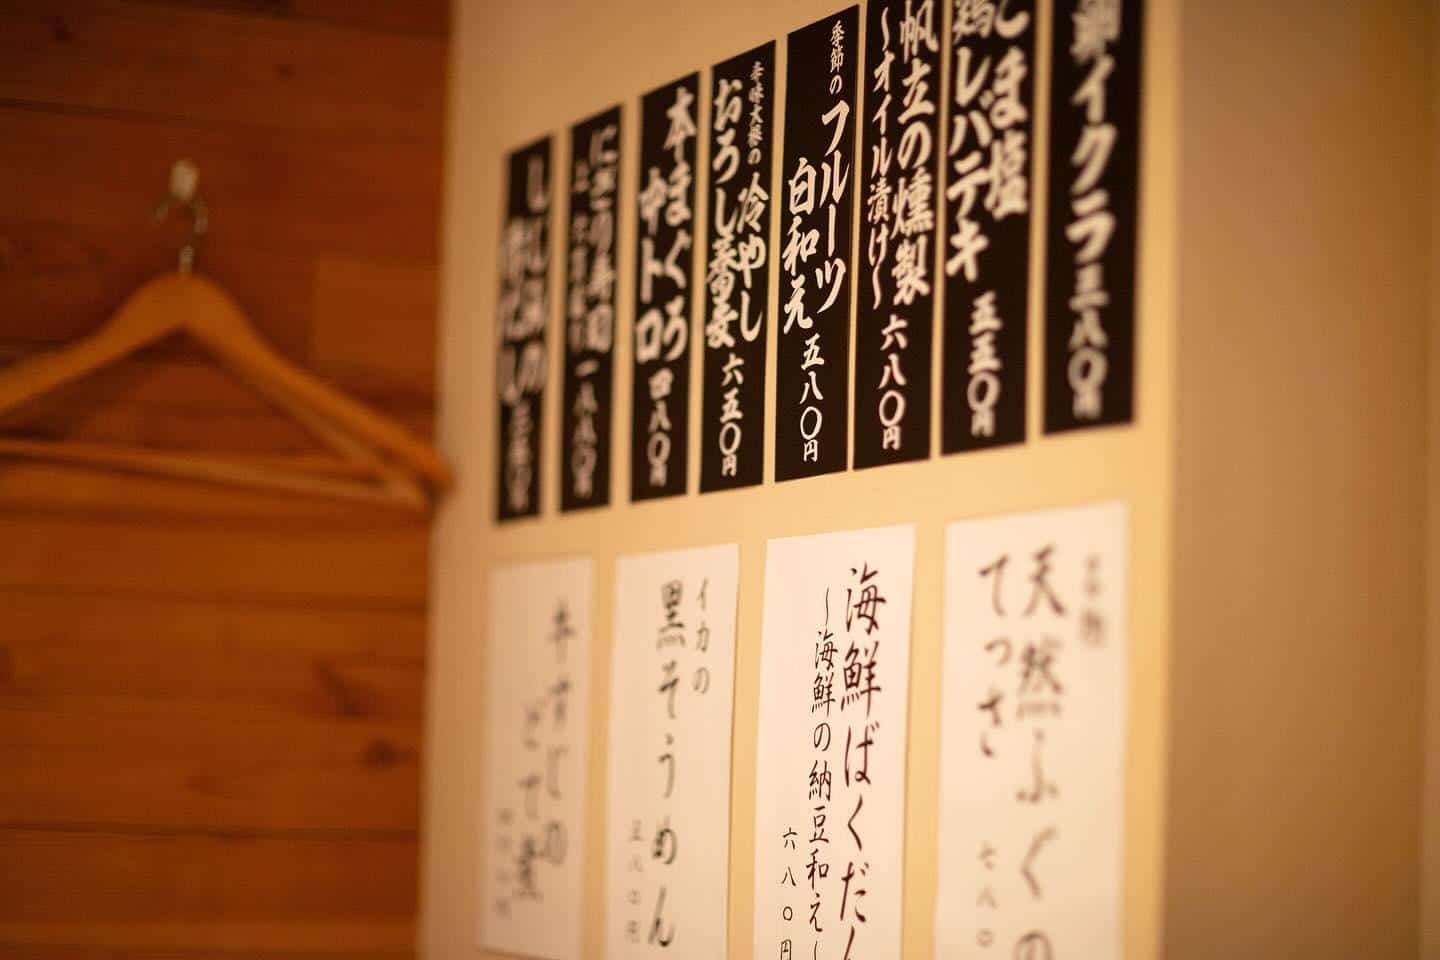 イクラ三八〇円
ごま塩
鶏レバテキ
五五〇円
帆立の燻製
～オイル漬け～
六八〇円
季節のフルーツ
白和え
五八〇円
辛味大根の冷やし
おろし蕎麦
六五〇円
本まぐろ
中トロ
四八〇円
にぎり寿司
一八八〇円
しじみの
三五〇
天然ふぐの
てっさ
七八〇
海鮮ばくだん
～海鮮の納豆和え～
六八〇円
イカの
黒そうめん
五八〇円
牛すじの
どて煮